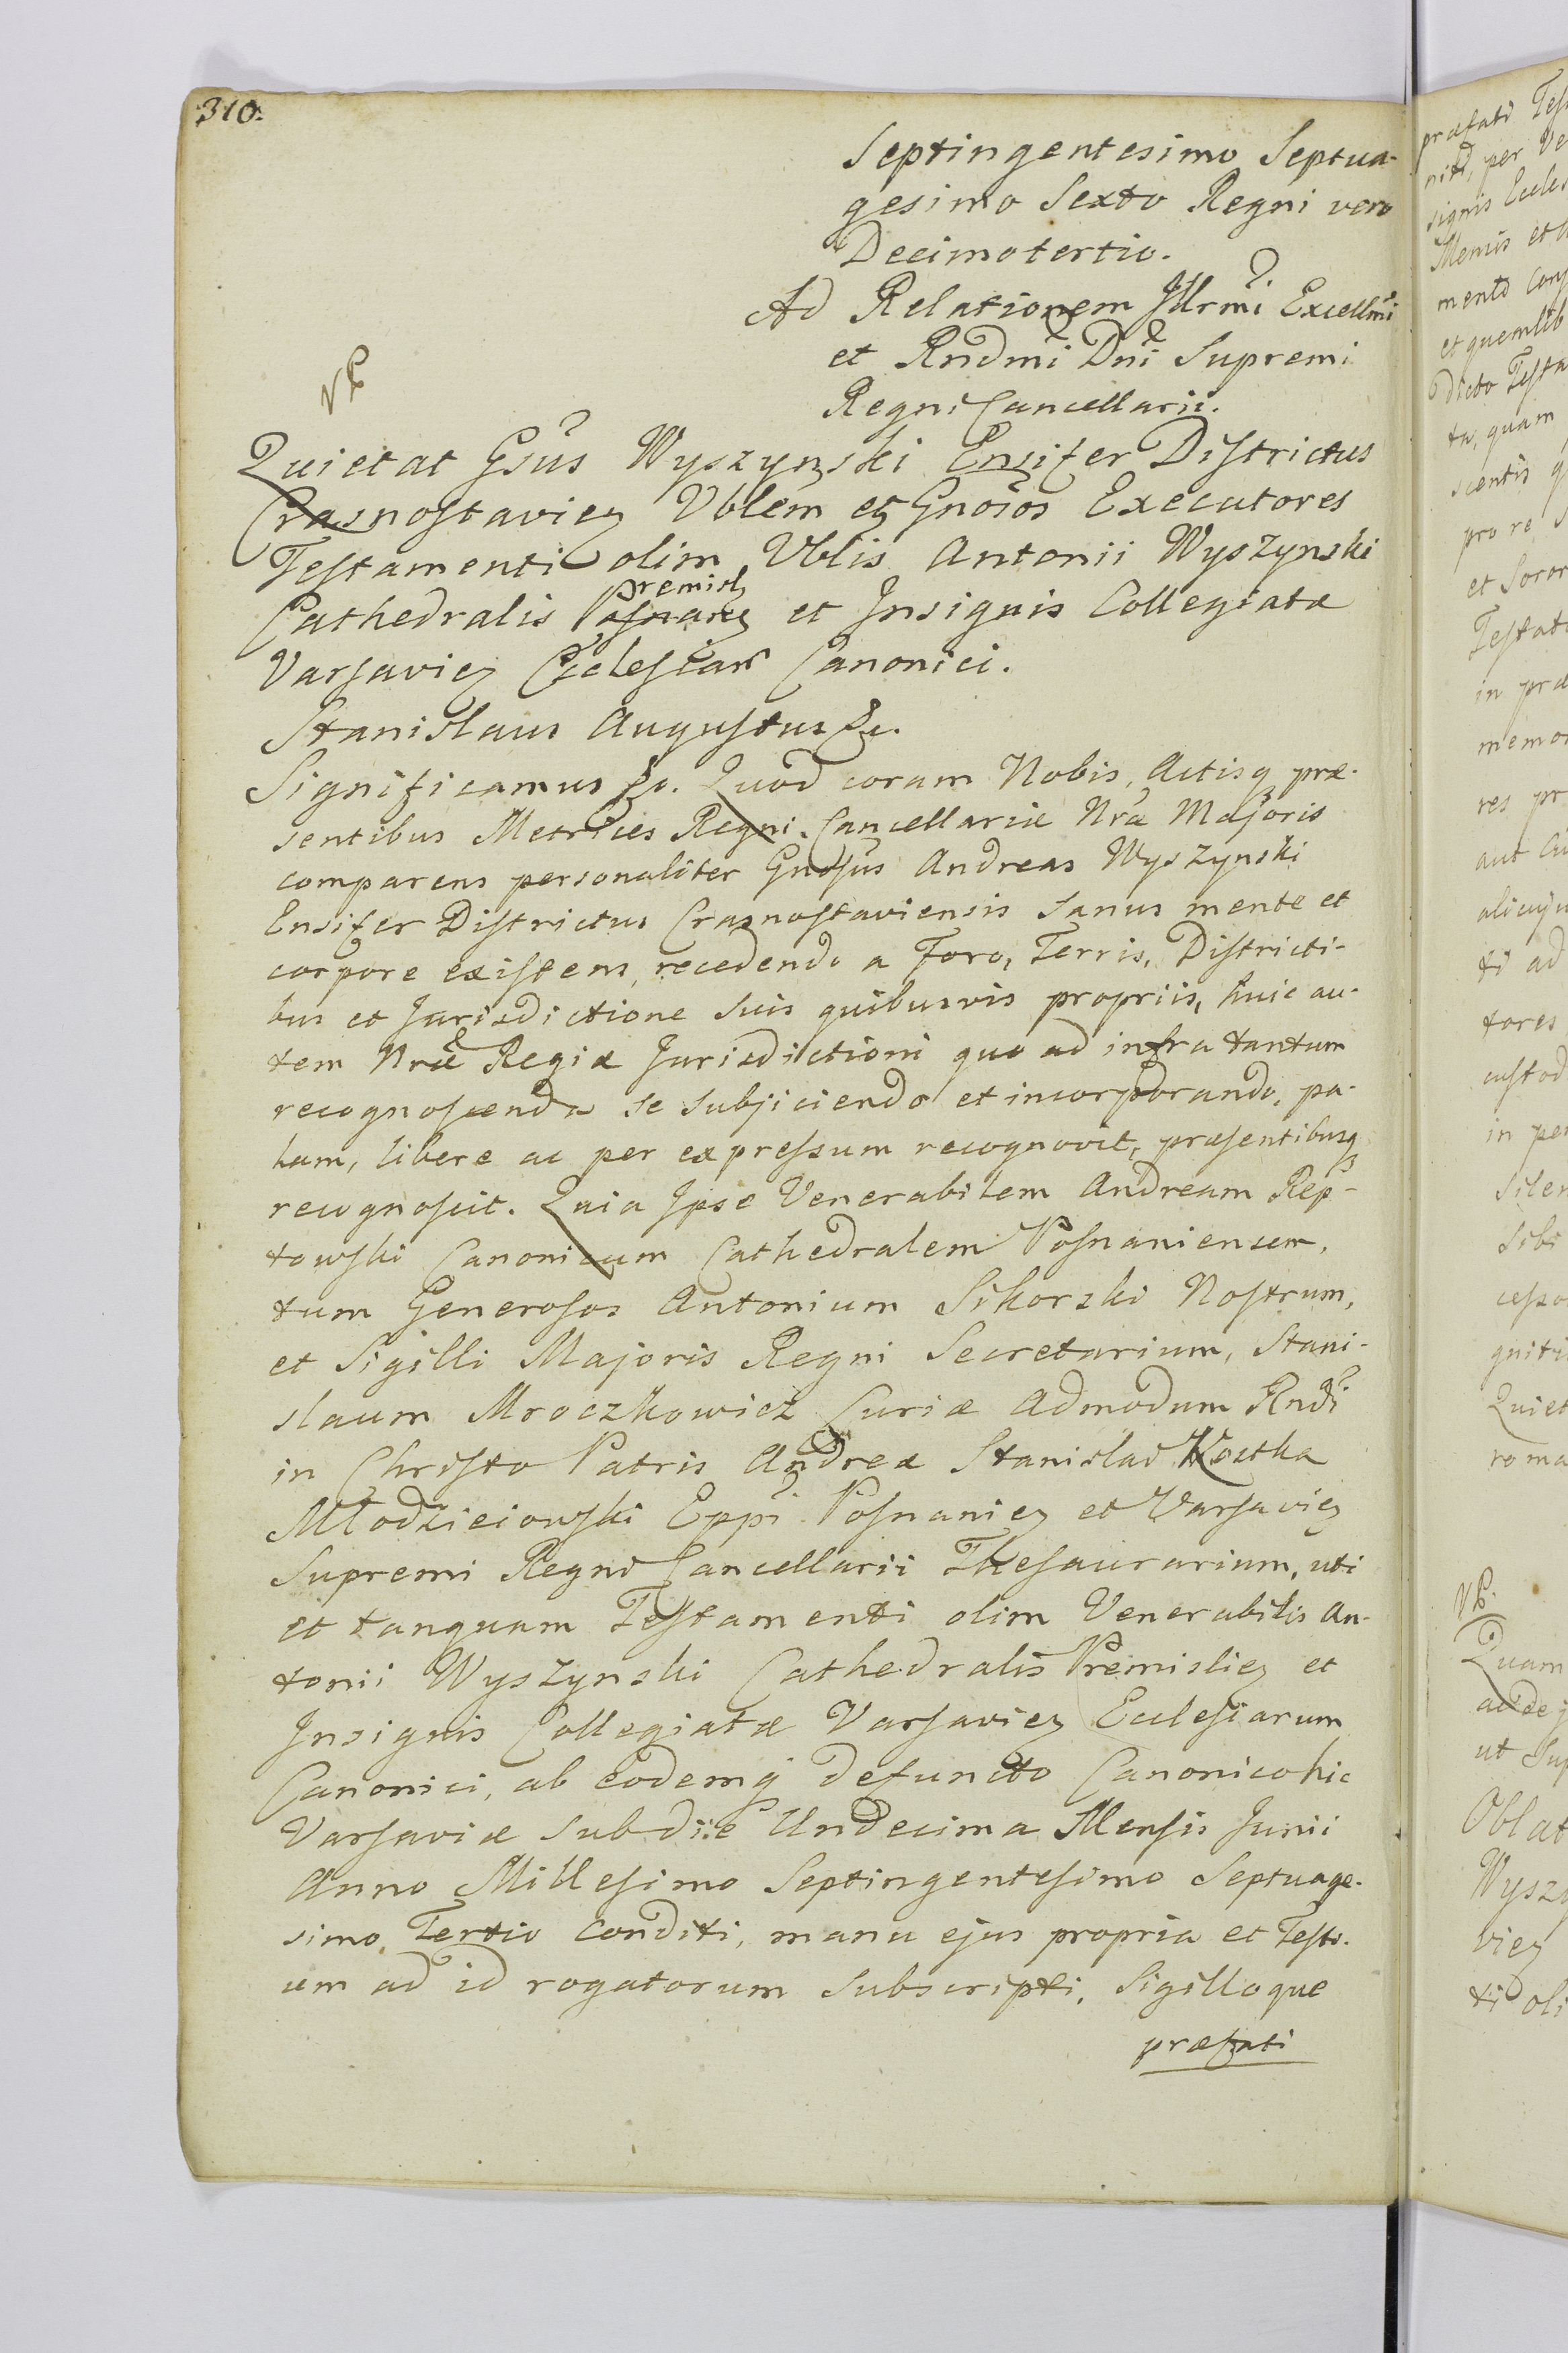 310.
Septingentesimo Septua-
gesimo Sexto Regni vero
Decimotertio.
Ad Relationem Jllrmi Excellmi
et Rndmi Dni Supremi
Regni Cancellarii.
Quietat Gsus Wyszynski Ensifer Districtus
Crasnostavien Vblem et Gnosos Executores
Testamenti olim Vblis Antonii Wyszynski
Premisl
Cathedralis Posnan et Jnsignis Collegiatæ
Varsavien Ecclesiar Canonici.
Stanislaus Augustus &c.
Significamus &c. Quod coram Nobis, Actisq præ-
sentibus Metrices Regni Cancellariæ Nræ Majoris
comparens personaliter Gnosus Andreas Wyszynski
Ensifer Districtus Crasnostaviensis sanus mente et
corpore existens, recedendo a Foro, Terris, Districti-
bus et Jurisdictione suis quibusvis propriis, huic au-
tem Nræ Regiæ Jurisdictioni quo ad infra tantum
recognoscenda se subjiciendo et incorporando, pa-
lam, libere ac per expressum recognovit, præsentibusq
recognoscit. Quia Jpse Venerabilem Andream Rep-
towski Canonicum Cathedralem Posnaniensem,
tum Generosos Antonium Sikorski Nostrum,
et Sigilli Majoris Regni Secretarium, Stani-
slaum Mroczkowicz Curiæ Admodum Rndi
in Christo Patris Andreæ Stanislai Kostka
Młodzieiowski Eppi Posnanien et Varsavien
Supremi Regni Cancellarii Thesaurarium, uti
et tanquam Testamenti olim Venerabilis An-
tonii Wyszynski Cathedralis Premislien et
Jnsignis Collegiatæ Varsavien Ecclesiarum
Canonici, ab eodemq defuncto Canonico hic
Varsaviæ sub die Undecima Mensis Junii
Anno Millesimo Septingentesimo Septuage-
simo Tertio conditi, manu ejus propria et Testi-
um ad id rogatorum subscripti, Sigilloque
præfati
præfati
per
signis
Mensis et
mento
et quemlib
dicto Testa
ta, quam
scentis
pro re
et Soror
in præ
res pr
alicuju
ti ad
tores
custod
in per
Silen
Sibi
Quiet
Quam
ut Sup
Oblat
Wyszy
vien
ti oli